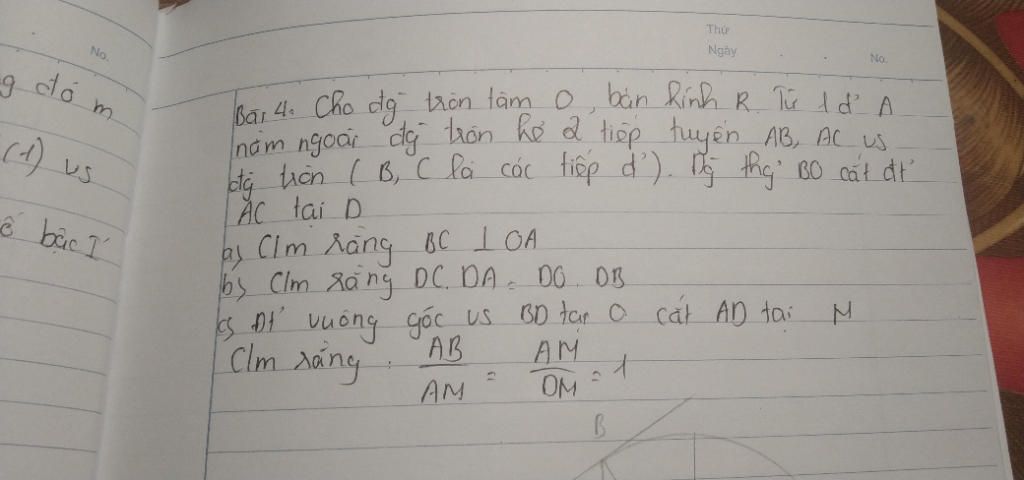 No.
Thứ
Ngày
No.
g đó m
(-1) vs
ế bậc I
Bài 4. Cho đg tròn tâm O, bán kính R. Từ 1 đ' A
nằm ngoài đg tròn kẻ 2 tiếp tuyến AB, AC vs
đg tròn (B, C là các tiếp đ'). Đg thg' BO cắt đt'
AC tại D
a) C/m rằng BC ⊥ OA
b) C/m rằng DC. DA = DO. DB
c) Đt' vuông góc vs BD tại O cắt AD tại M
C/m rằng : AB/AM = AM/OM = 1
B